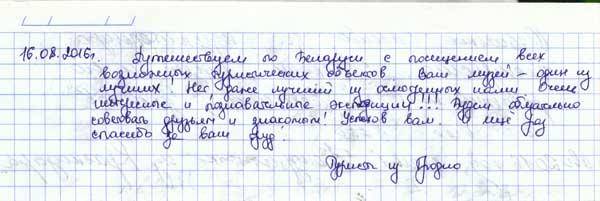 16.08.2016г. Путешествуем по Беларуси с посещением всех
возможных туристических объектов. Ваш музей – один из
лучших! Нет, даже лучший из осмотренных нами. Очень
интересные и познавательные экспозиции!!! Будем обязательно
советовать друзьям и знакомым! Успехов вам. И ещё раз
спасибо за ваш труд!
Туристы из Гродно